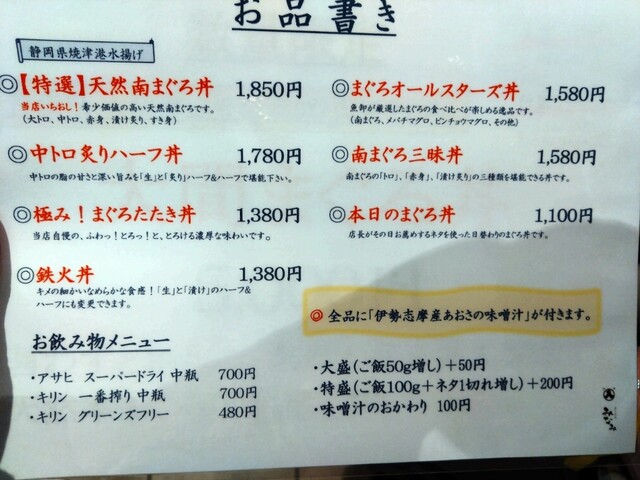 お品書き
静岡県焼津港水揚げ
◎【特選】天然南まぐろ丼 1,850円
当店いちおし！希少価値の高い天然南まぐろです。
（大トロ、中トロ、赤身、漬け炙り、すき身）
◎中トロ炙りハーフ丼 1,780円
中トロの脂の甘さと深い旨みを「生」と「炙り」ハーフ&ハーフで堪能下さい。
◎極み！まぐろたたき丼 1,380円
当店自慢の、ふわっ！とろっ！と、とろける濃厚な味わいです。
◎鉄火丼 1,380円
キメの細かいなめらかな食感！「生」と「漬け」のハーフ&
ハーフにも変更できます。
◎まぐろオールスターズ丼 1,580円
魚卸が厳選したまぐろの食べ比べが楽しめる逸品です。
（南まぐろ、メバチマグロ、ビンチョウマグロ、その他）
◎南まぐろ三昧丼 1,580円
南まぐろの「トロ」、「赤身」、「漬け炙り」の三種類を堪能できる丼です。
◎本日のまぐろ丼 1,100円
店長がその日お薦めするネタを使った日替わりのまぐろ丼です。
◎全品に「伊勢志摩産あおさの味噌汁」が付きます。
お飲み物メニュー
・アサヒ スーパードライ 中瓶 700円
・キリン 一番搾り 中瓶 700円
・キリン グリーンズフリー 480円
・大盛（ご飯50g増し）＋50円
・特盛（ご飯100g＋ネタ1切れ増し）＋200円
・味噌汁のおかわり 100円